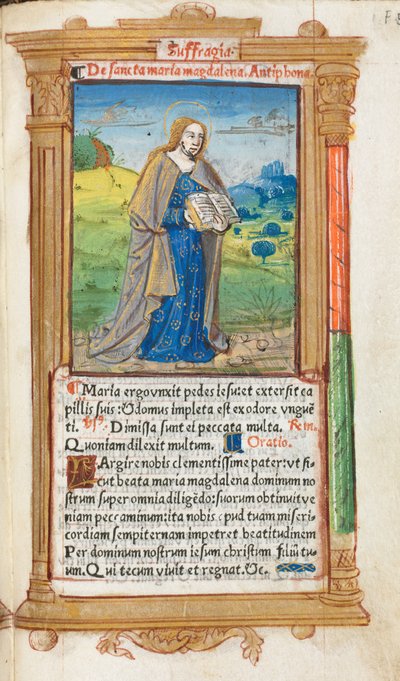 Suffragia.
¶ De sancta maria magdalena. Antiphona
¶ Maria ergo vnxit pedes iesu: et extersit ca
pillis suis: & domus impleta est ex odore vnguē
ti. v̄s. Dimissa sunt ei peccata multa. Re.
Quoniam dilexit multum. Oratio.
Largire nobis clementissime pater: vt si
cut beata maria magdalena dominum no
strum super omnia diligēdo: suorum obtinuit ve
niam peccaminum: ita nobis apud tuam miseri
cordiam sempiternam impetret beatitudinem
Per dominum nostrum iesum christum filiū tu
um. Qui tecum viuit et regnat. &c.